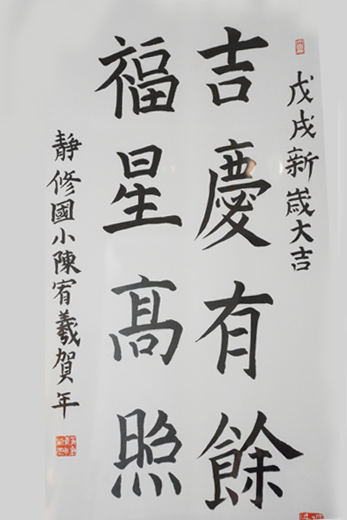 戊戌新歲大吉
吉慶有餘
福星高照
靜修國小陳宥羲賀年